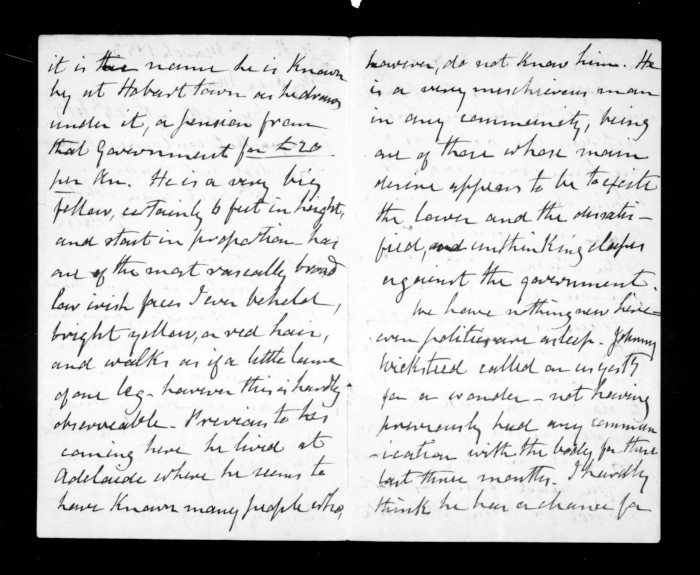 it is the name he is known
by at Hobart town as he draws
under it, a pension from
that Government for £20
per An. He is a very big
fellow, certainly 6 feet in height,
and stout in proportion - has
one of the most rascally broad
low irish faces I ever beheld,
bright yellow, or red hair,
and walks as if a little lame
of one leg - however this is hardly
observeable - Previous to his
coming here he lived at
Adelaide where he seems to
have known many people who,
however, do not know him. He
is a very mischievous man
in any community, being
one of those whose main
desire appears to be to excite
the lower and the dissatis-
fied, and unthinking classes
against the government.
We have nothing new here -
even politics are asleep - Johnny
Wicksteed called on us yesty
for a wonder - not having
previously had any commun
-ication with the body for these
last three months. I hardly
think he has a chance for